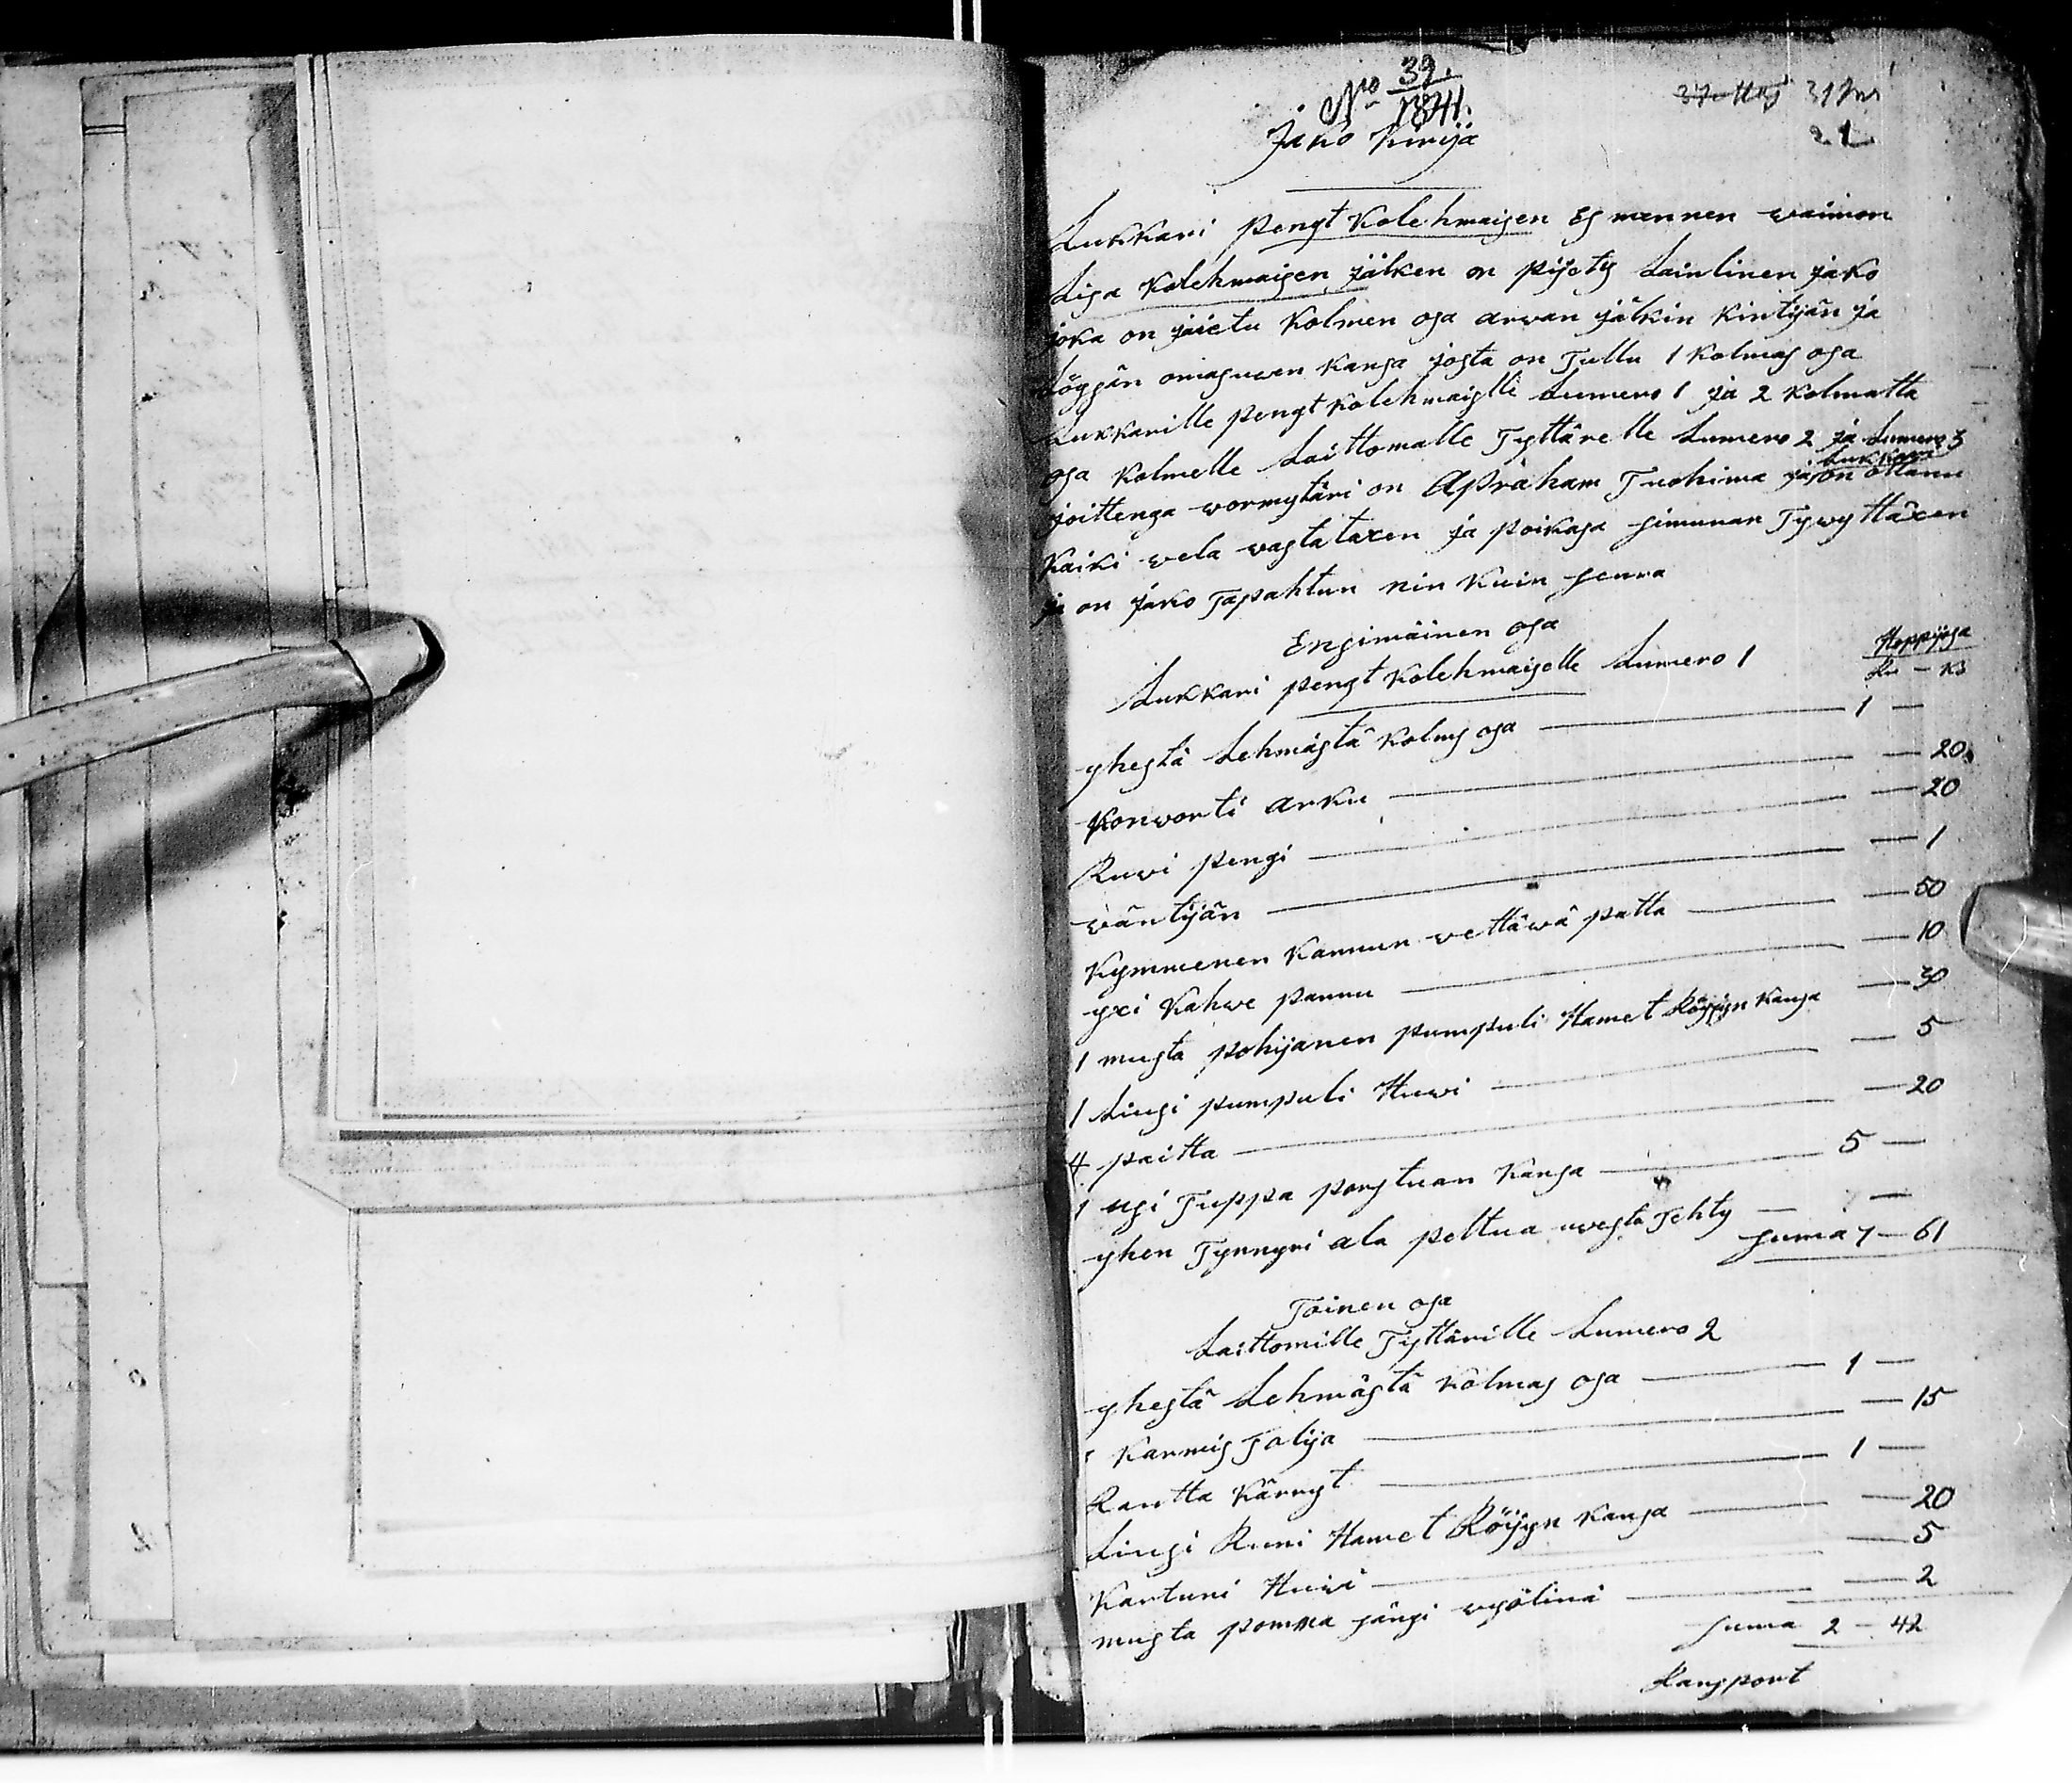 No 39.
1841.
31
21
Jako Kirija
Lukkari pengt Kolehmaisen Es mannen waimon
Lisa Kolehmaisen jälken on pijety Lainlinen jako
joka on jaietu Kolmen osa arwan jälkin Kintijän ja
Löysän omasuwen Kansa josta on Tullu 1 Kolmas osa
Lukkarille pengt Kolehmaislle Lumero 1 ja 2 Kolmatta
osa Kolmelle Laittomalle Tyttärelle Lumero 2 ja Lumero 3
joittensa wormytäri on Apraham Tuohima ja Lukkari on ottanu
Kaiki wela wastataxen ja poikasa simunan Tywyttäxen
ja on jako Tapahtun nin Kuin seura
Ensimäinen osa
Lukkari pengt Kolehmaiselle Lumero 1
Hoppijsa
Ru - K3
yhestä Lehmästä Kolmas osa 1 —
Konworti arku — 20
Ruwi pengi — 20
wäntijän — 1
Kymmenen Kannun wettäwä patta — 50
yxi Kahwe pannu — 10
1 musta pohijanen pumpuli Hamet Röyjyn Kansa — 30
1 Liugi pumpuli Huwi — 5
4 paitta — 20
1 usi Tuppa porstuan Kansa 5 —
yhen Tynnyri ala peltua uwesta Tehty — —
suma 7 — 61
Toinen osa
Laittomille Tyttärille Lumero 2
yhestä Lehmästä Kolmas osa 1 —
1 Karmis Tolija — 15
Rautta Kärryt 1 —
Liugi Runi Hamet Röyjyn Kansa — 20
Kartuni Huiwi — 5
musta pomma sängi wyölinä — 2
suma 2 - 42
Ransport